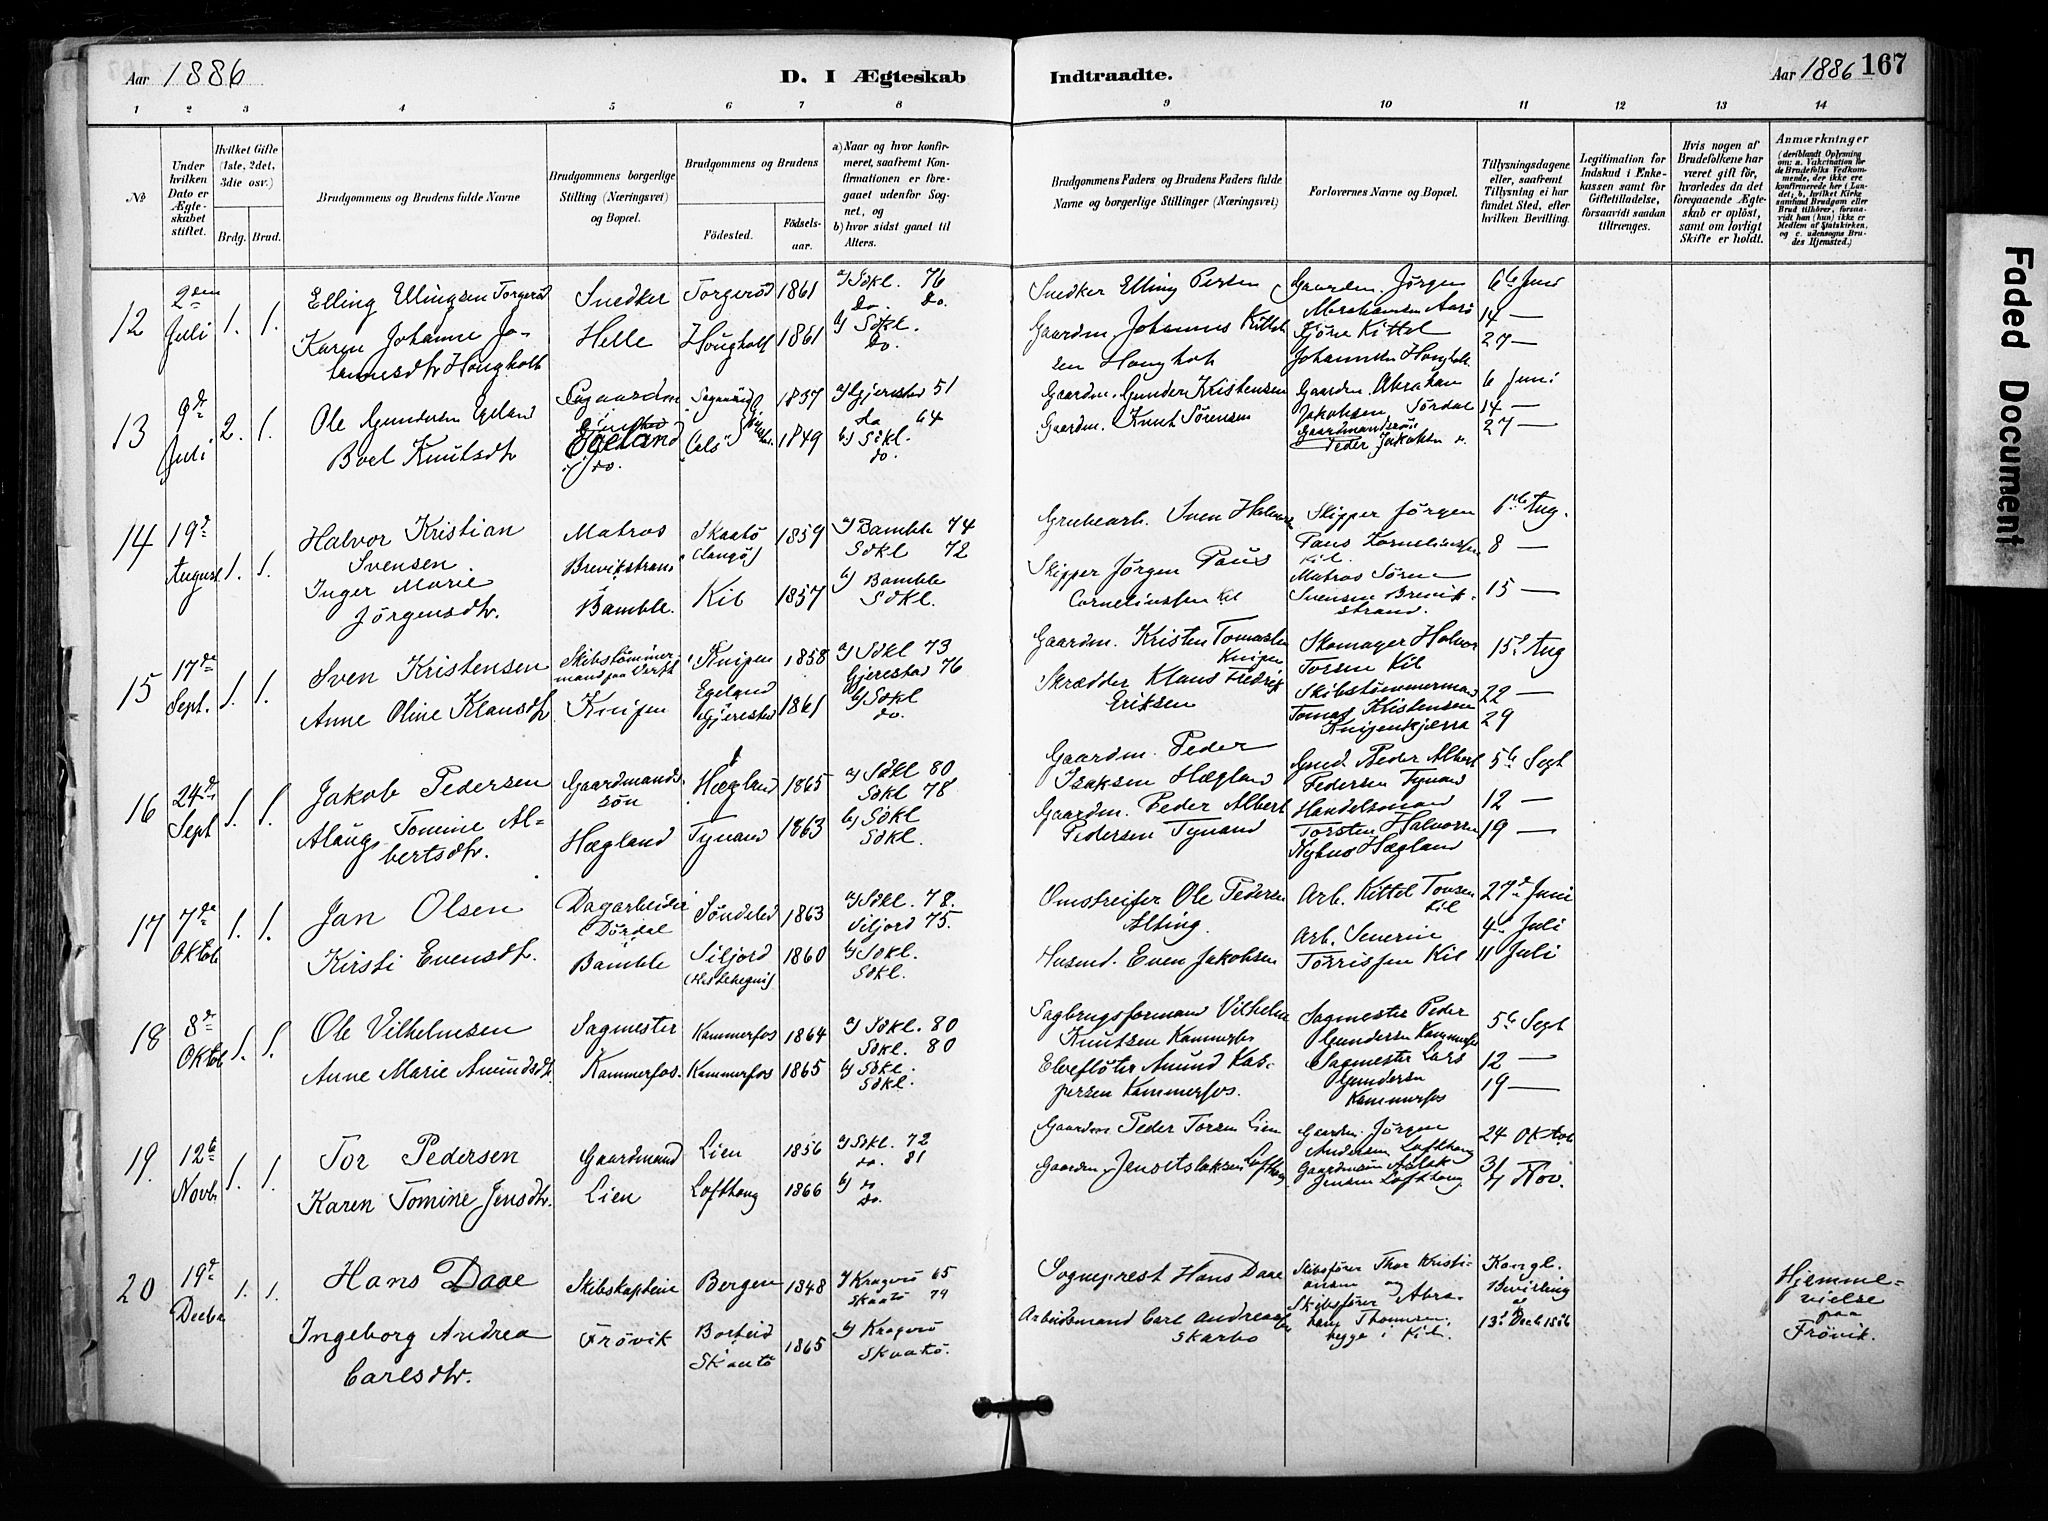 Aar 1886
D. I Ægteskab Indtraadte.
Aar 1886 167
1 2 3 4 5 6 7 8 9 10 11 12 13 14
No
Under hvilken Dato er Ægteskabet stiftet.
Hvilket Gifte (1ste, 2det, 3die osv.)
Brdg. Brud.
Brudgommens og Brudens fulde Navne
Brudgommens borgerlige Stilling (Næringsvei) og Bopæl.
Brudgommens og Brudens
Fødested. Fødselsaar.
a) Naar og hvor konfirmeret, saafremt Konfirmationen er foregaaet udenfor Sognet, og
b) hvor sidst gaaet til Alters.
Brudgommens Faders og Brudens Faders fulde Navne og borgerlige Stillinger (Næringsvei)
Forlovernes Navne og Bopæl.
Tillysningsdagene eller, saafremt Tillysning ei har fundet Sted, efter hvilken Bevilling.
Legitimation for Indskud i Enkekassen samt for Giftetilladelse, forsaavidt saadan tiltrænges.
Hvis nogen af Brudefolkene har været gift før, hvorledes da det foregaaende Ægteskab er opløst, samt om lovligt Skifte er holdt.
Anmærkninger
12 2den Juli 1. 1.
Elling Ellingsen Torgerød
Karen Johanne Johannesdtr Hougholt
Snedker
Helle
Torgerød 1861
Hougholt 1861
a) Sdkl. 76
do. do.
b) Sdkl.
do
Snedker Elling Persen
Gaardm. Johannes Kittelsen Hougholt
Gaardm. Jørgen Abrahamsen Aarø
Kittel Johannesen Hougholt
6te Juni
14 —
27 —
13 9de Juli 2. 1.
Ole Gundersen Egeland
Boel Knutsdtr
Egeland
1837
1849
a) Gjerestad 51
do 64
b) Sdkl.
do.
Gaardm. Gunder Kristensen
Gaardm. Knut Sørensen
Gaardm. Abraham Jakobsen Sørdal
Gaardmandssøn Peder Jakobsen
6 Juni
14 —
27 —
14 19de August 1. 1.
Halvor Kristian Svensen
Inger Marie Jørgensdtr.
Matros
Brevikstrand
Bamble.
Skaatø (Langø) 1859
Kil 1857
a) Bamble 74
Sdkl 72
b) Bamble
Sdkl.
Grubearb. Sven Halvorsen
Skipper Jørgen Paus Corneliussen Kil
Skipper Jørgen Paus Korneliussen Kil.
Matros Sørene Svensen Brevikstrand.
1ste Aug.
8 —
15 —
15 17de Sept. 1. 1.
Sven Kristensen
Anne Oline Klausdtr
Skibstømmermand
Knipen
Knipen 1858
Egeland Gjerestad 1861
a) Sdkl 73
Gjerestad 76
b) Sdkl
do.
Gaardm. Kristen Tomassen Knipen
Skrædder Klaus Fredrik Eriksen
Skomager Halvor Torsen Kil
Skibstømmermand Tomas Kristensen Knipenkjærra
15de Aug
22 —
29
16 24de Sept 1. 1.
Jakob Pedersen
Alaug Tomine Albertsdtr.
Gaardmandssøn
Hægland
Hægland 1865
Tynand 1863
a) Sdkl 80
Sdkl 78
b) Sdkl
Sdkl.
Gaardm. Peder Isaksen Hægland
Gaardm. Peder Albert Pedersen Tynand
Gmd. Peder Albert Pedersen Tynand
Handelsmand Torsten Halvorsen Nyhus Hægland
5te Sept
12 —
19 —
17 7de Oktob 1. 1.
Jan Olsen
Kirsti Evensdtr.
Dagarbeider
Dørdal
Bamble
Søndeled 1863
Siljord 1860
a) Sdkl. 78.
Siljord 75.
b) Sdkl.
Sdkl.
Omstreifer Ole Pedersen Alting.
Husmd. Even Jakobsen
Arb. Kittel Tousen Kil
Arb. Severin Torrissen Kil
27de Juni
4de Juli
11 Juli
18 8de Oktob 1. 1.
Ole Vilhelmsen
Anne Marie Amundsdtr.
Sagmester
Kammerfos.
Kammerfos 1864
Kammerfos 1865
a) Sdkl. 80
Sdkl. 80
b) Sdkl.
Sdkl.
Sagbrugsformand Vilhelm Knutsen Kammerfos
Elvefløter Amund Kaspersen Kammerfos.
Sagmester Peder Gundersen Kammerfos
Sagmester Lars Gundersen Kammerfos
5te Sept
12 —
19 —
19. 12te Novb. 1. 1.
Tor Pedersen
Karen Tomine Jensdtr.
Gaardmand
Lien
Lien 1856
Lofthaug 1866
a) Sdkl. 72
do. 81
b) do
do.
Gaardm Peder Torsen Lien
Gaardm. Jens Aslaksen Lofthaug
Gaardm. Jørgen Andersen Lofthaug
Gaardmsøn Aslak Jensen Lofthaug
24 Oktob
31
7 Nov.
20 19de Decbr 1. 1.
Hans Daae
Ingeborg Andrea Carlsdtr.
Skibskaptein
Frøvik
Bergen 1848
Skaatø 1865
a) Kragerø 65
Skaatø 79
b) Kragerø
Skaatø.
Sogneprest Hans Daae
Arbeidsmand Carl Andreassen Skarbo
Skibsfører Thor Kristiansen og Skibsfører Abraham Thomsen, begge i Kil.
Kongl. Bevilling af 13de Decb 1886
Hjemmevielse paa Frøvik.
Faded Document